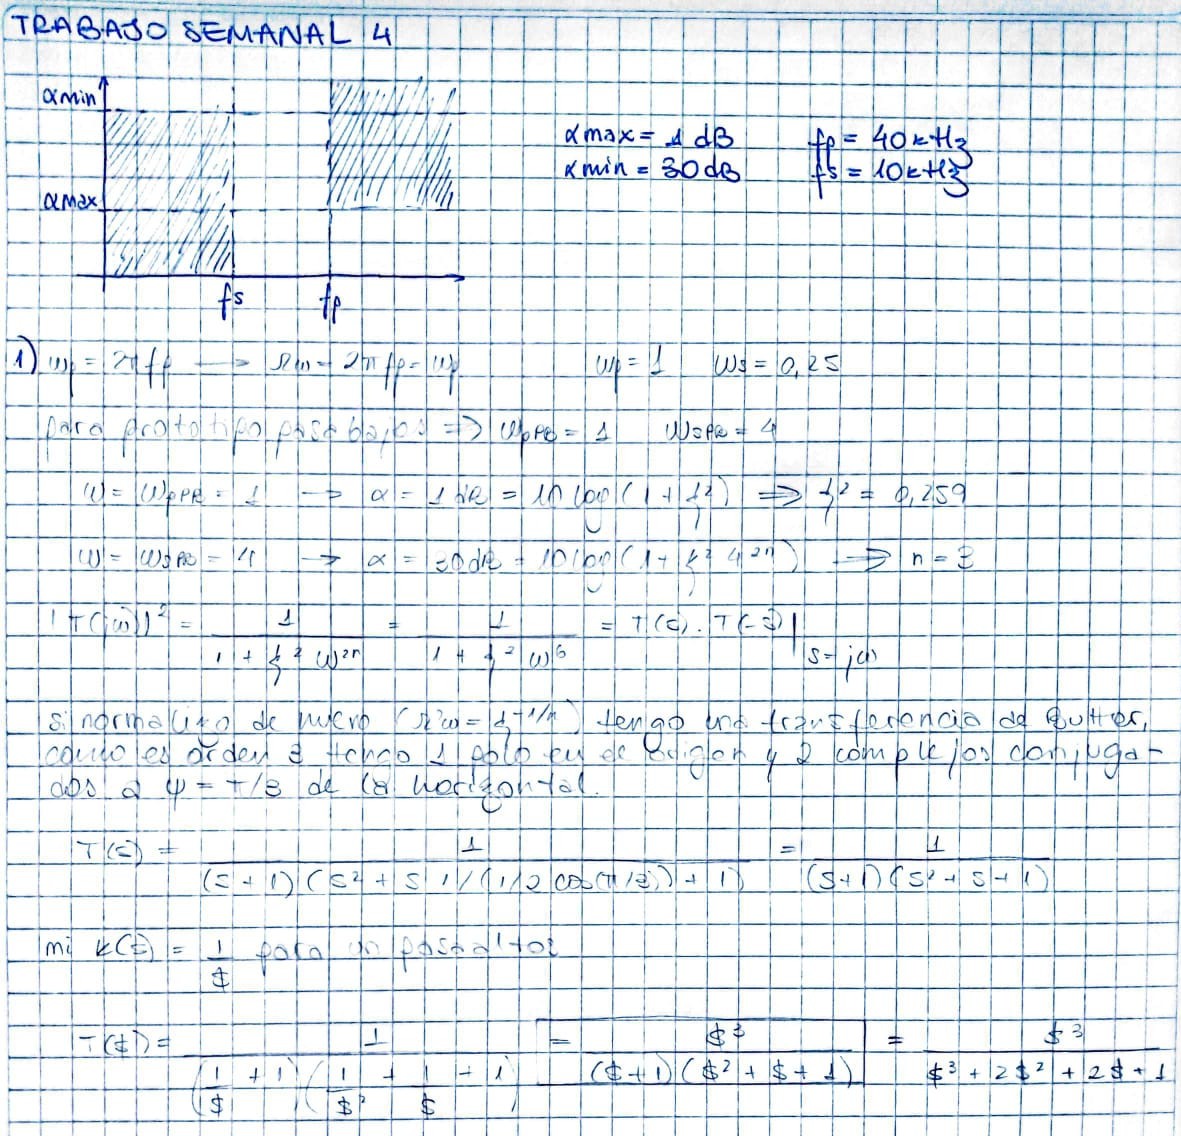 TRABAJO SEMANAL 4
αmin
αmax
fs fp
αmax = 1 dB fp = 40kHz
αmin = 30dB fs = 10kHz
1) ωp = 2πfp → Ωω = 2πfp = ωp ωp = 1 ωs = 0,25
para prototipo pasabajos ⇒ ωpPB = 1 ωsPB = 4
ω = ωpPB = 1 → α = 1 dB = 10 log(1 + ξ²) ⇒ ξ² = 0,259
ω = ωsPB = 4 → α = 30dB = 10 log(1 + ξ² 4²ⁿ) ⇒ n = 3
|T(jω)|² = 1 / (1 + ξ² ω²ⁿ) = 1 / (1 + ξ² ω⁶) = T(s) . T(-s) | s = jω
si normalizo de nuevo (Ω'ω = ξ^-1/n) tengo una transferencia de Butter,
como es orden 3 tengo 1 polo en el origen y 2 complejos conjuga-
dos a ψ = π/3 de la horizontal.
T(s) = 1 / ((s + 1) (s² + s 1/(1/2 cos(π/3)) + 1)) = 1 / ((s+1) (s² + s + 1))
mi K(s) = 1/$ para un pasaaltos
T($) = 1 / ((1/$ + 1) (1/$² + 1/$ + 1)) = $³ / (($+1) ($² + $ + 1)) = $³ / ($³ + 2$² + 2$ + 1)